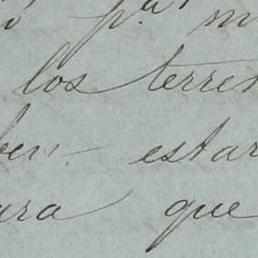 p.ª m
los terre
ben estar
ara que